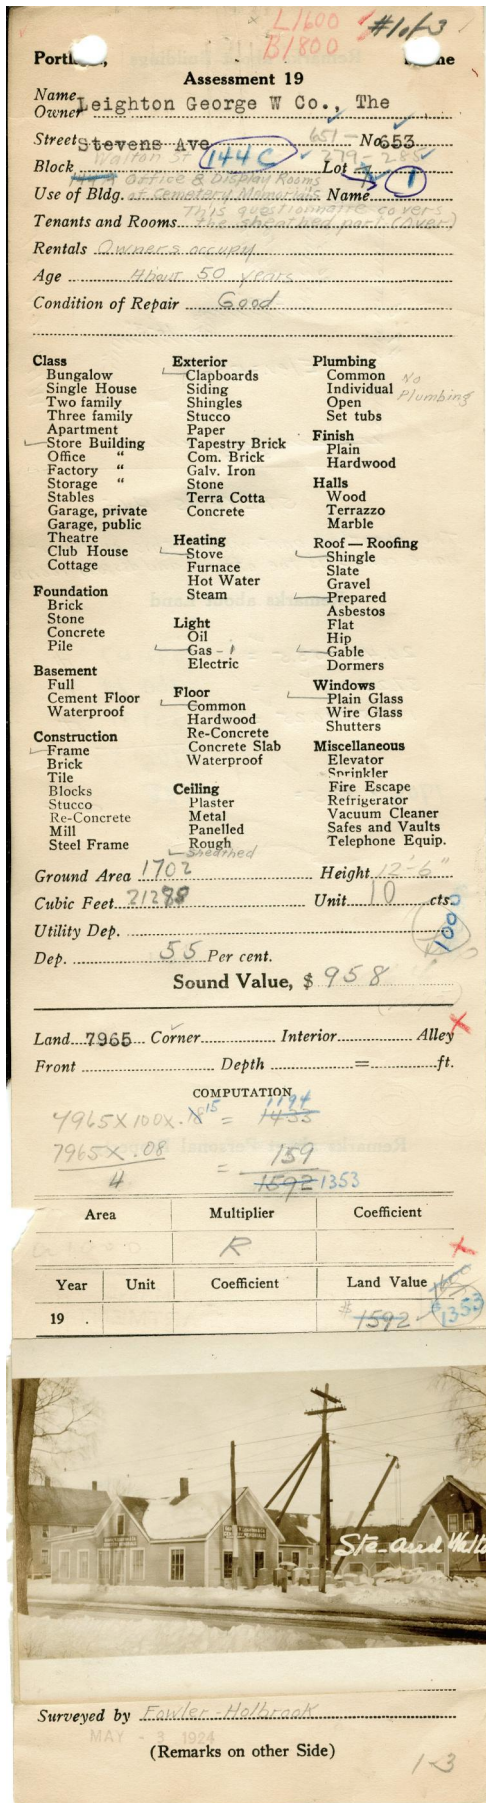 L1600 #1 of 3
B1800
Portl , ne
Assessment 19
Name
Owner Leighton George W Co., The
651-
Street Stevens Ave No 653
Walton St 279-285
Block 144C Lot 1
Office & Display Rooms
Use of Bldg. of Cemetery Memorials Name
This questionnaire covers
Tenants and Rooms the sheathed part (over)
Rentals Owners occupy
Age About 50 years
Condition of Repair Good
Class
Bungalow
Single House
Two family
Three family
Apartment
Store Building
Office "
Factory "
Storage "
Stables
Garage, private
Garage, public
Theatre
Club House
Cottage
Foundation
Brick
Stone
Concrete
Pile
Basement
Full
Cement Floor
Waterproof
Construction
Frame
Brick
Tile
Blocks
Stucco
Re-Concrete
Mill
Steel Frame
Exterior
Clapboards
Siding
Shingles
Stucco
Paper
Tapestry Brick
Com. Brick
Galv. Iron
Stone
Terra Cotta
Concrete
Heating
Stove
Furnace
Hot Water
Steam
Light
Oil
Gas - 1
Electric
Floor
Common
Hardwood
Re-Concrete
Concrete Slab
Waterproof
Ceiling
Plaster
Metal
Panelled
Rough
Sheathed
Plumbing
Common No
Individual Plumbing
Open
Set tubs
Finish
Plain
Hardwood
Halls
Wood
Terrazzo
Marble
Roof — Roofing
Shingle
Slate
Gravel
Prepared
Asbestos
Flat
Hip
Gable
Dormers
Windows
Plain Glass
Wire Glass
Shutters
Miscellaneous
Elevator
Sprinkler
Fire Escape
Refrigerator
Vacuum Cleaner
Safes and Vaults
Telephone Equip.
Ground Area 1702 Height 12'-6"
Cubic Feet 21288 Unit 10 cts.
1000
Utility Dep.
Dep. 55 Per cent.
Sound Value, $ 958
Land 7965 Corner Interior Alley
Front Depth = ft.
COMPUTATION
1194
7965 X 100 X .15 = 1433
7965 X .08 159
4 = 1592 1353
Area Multiplier Coefficient
R
Year Unit Coefficient Land Value
19 . $ 1592 $1353
Ste- and Walt
Surveyed by Fowler-Holbrook
MAY - 3 1924
(Remarks on other Side)
1-3